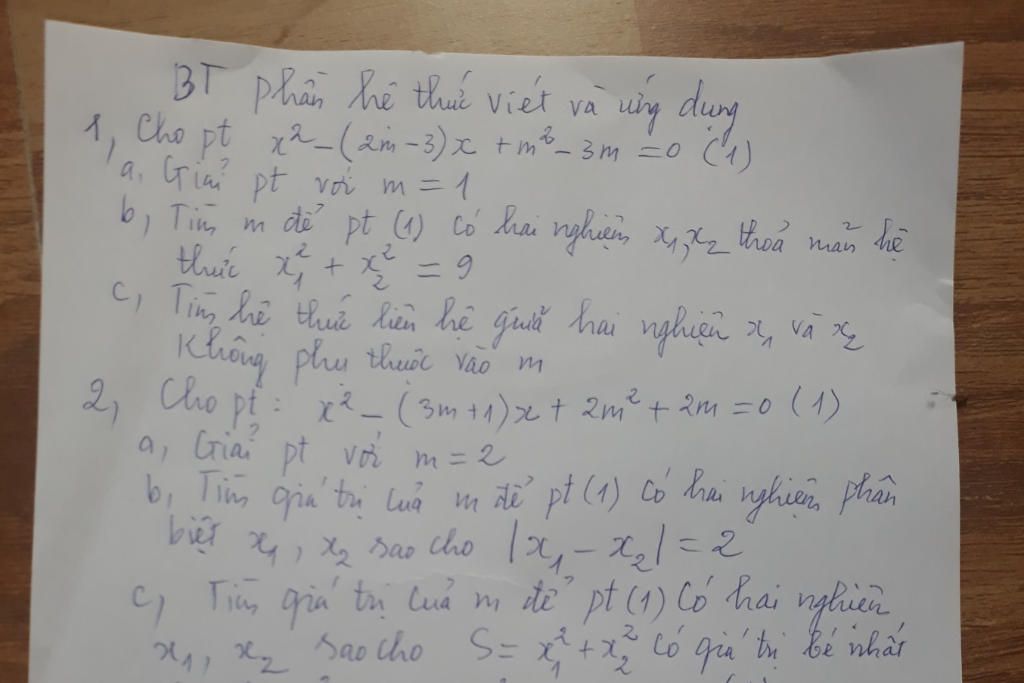 BT phần hệ thức viét và ứng dụng
1, Cho pt x² - (2m - 3)x + m² - 3m = 0 (1)
a. Giải pt với m = 1
b, Tìm m để pt (1) có hai nghiệm x₁, x₂ thoả mãn hệ
thức x₁² + x₂² = 9
c, Tìm hệ thức liên hệ giữa hai nghiệm x₁ và x₂
không phụ thuộc vào m
2, Cho pt : x² - (3m + 1)x + 2m² + 2m = 0 (1)
a, Giải pt với m = 2
b, Tìm giá trị của m để pt (1) có hai nghiệm phân
biệt x₁, x₂ sao cho |x₁ - x₂| = 2
c, Tìm giá trị của m để pt (1) có hai nghiệm
x₁, x₂ sao cho S = x₁² + x₂² có giá trị bé nhất